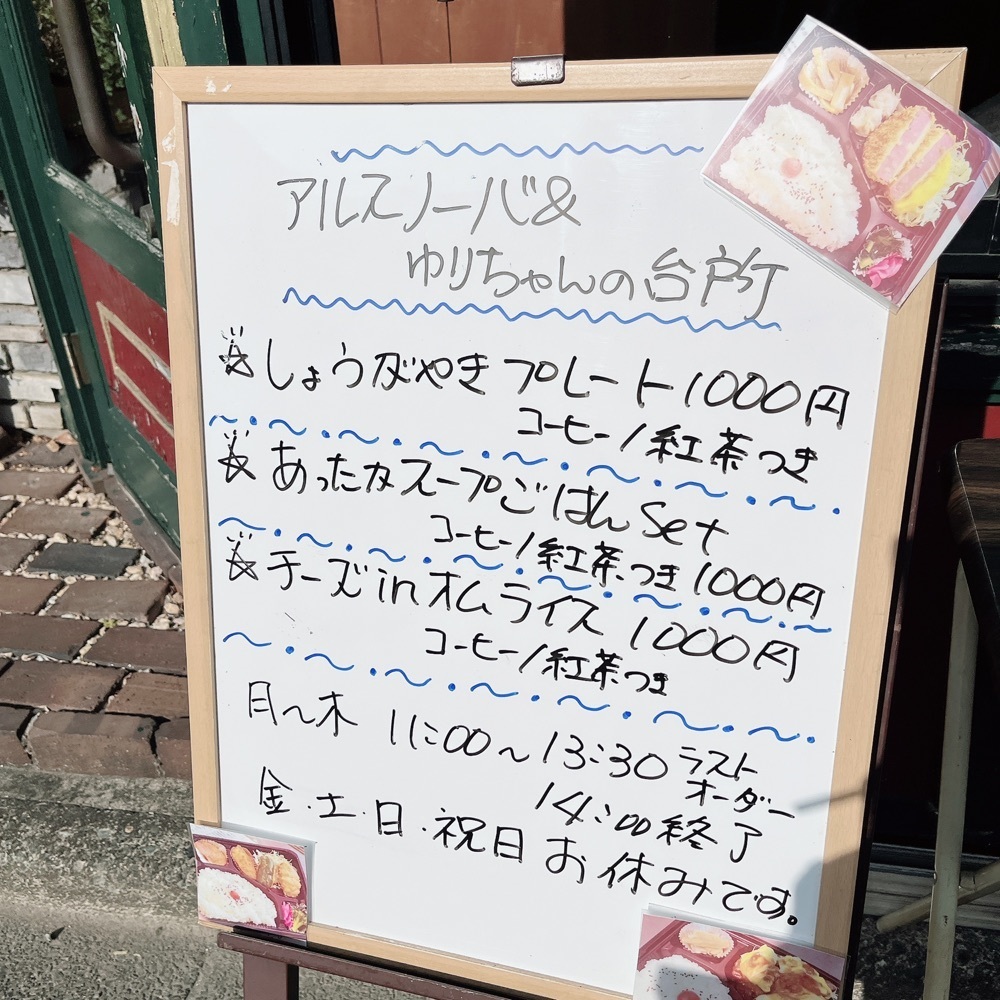 アルスノーバ&
ゆりちゃんの台所
☆しょうがやきプレート1000円
コーヒー/紅茶つき
☆あったかスープごはんset
コーヒー/紅茶つき1000円
☆チーズinオムライス 1000円
コーヒー/紅茶つき
月～木 11:00～13:30ラスト
オーダー
14:00終了
金・土・日・祝日お休みです。